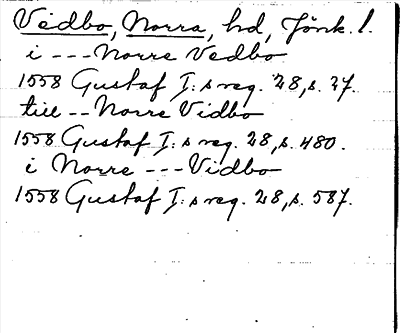 Vedbo, Norra, hd, Jönk. l.
i --- Norre Vedbo
1558 Gustaf I:s reg. 28, s. 27.
till -- Norre Vidbo
1558 Gustaf I:s reg. 28, s. 480.
i Norre --- Vidbo
1558 Gustaf I:s reg. 28, s. 587.